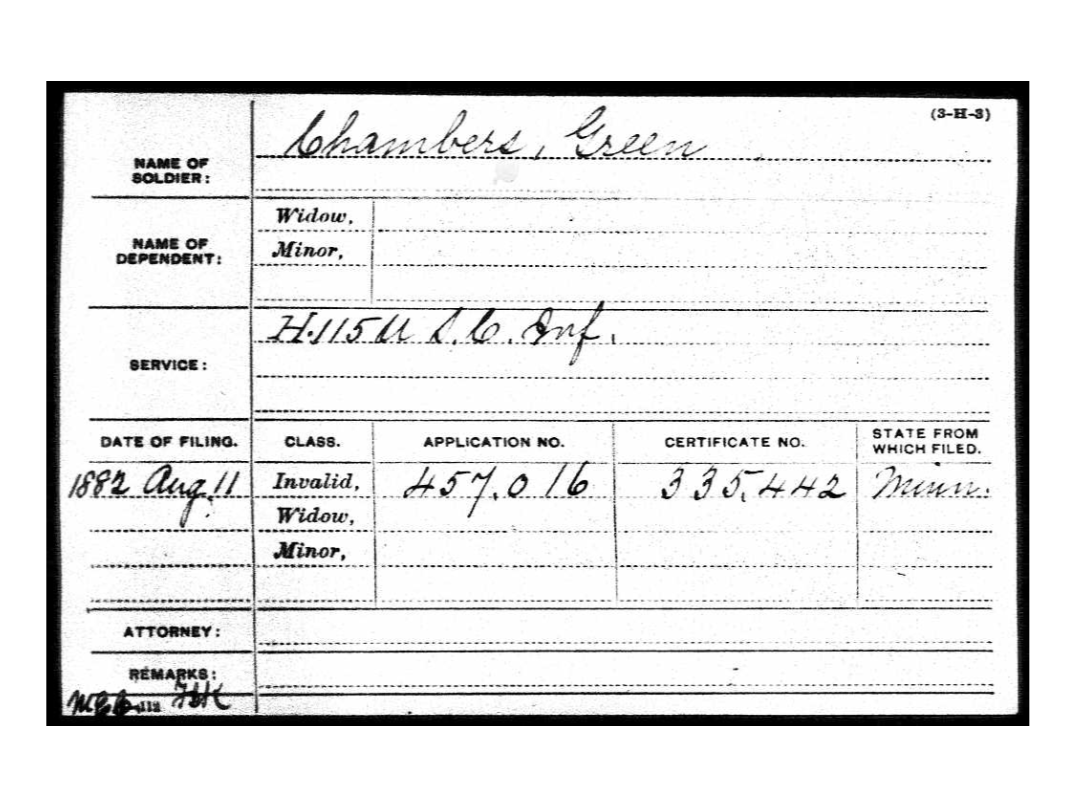 (3-H-3)
Chambers, Green
NAME OF
SOLDIER:
NAME OF
DEPENDENT:
Widow,
Minor,
SERVICE:
H. 115 U S. C. Inf.
DATE OF FILING. CLASS. APPLICATION NO. CERTIFICATE NO. STATE FROM
WHICH FILED.
1882 Aug. 11 Invalid, 457.016 335,442 Minn.
Widow,
Minor,
ATTORNEY:
REMARKS: